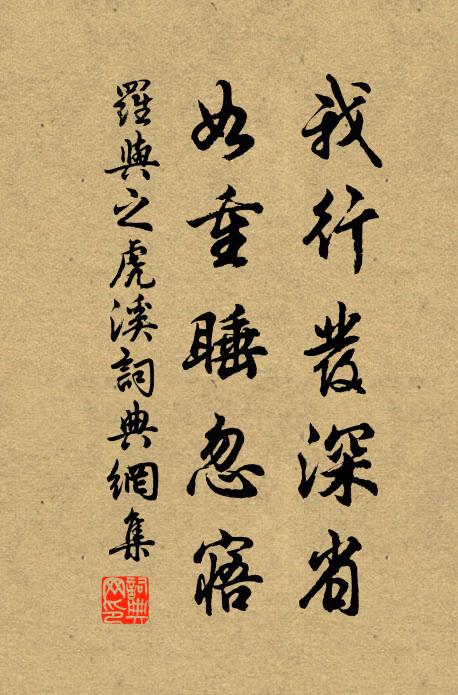 我行發深省
如重睡忽寤
羅與之虎溪詞典網集
詞典網印